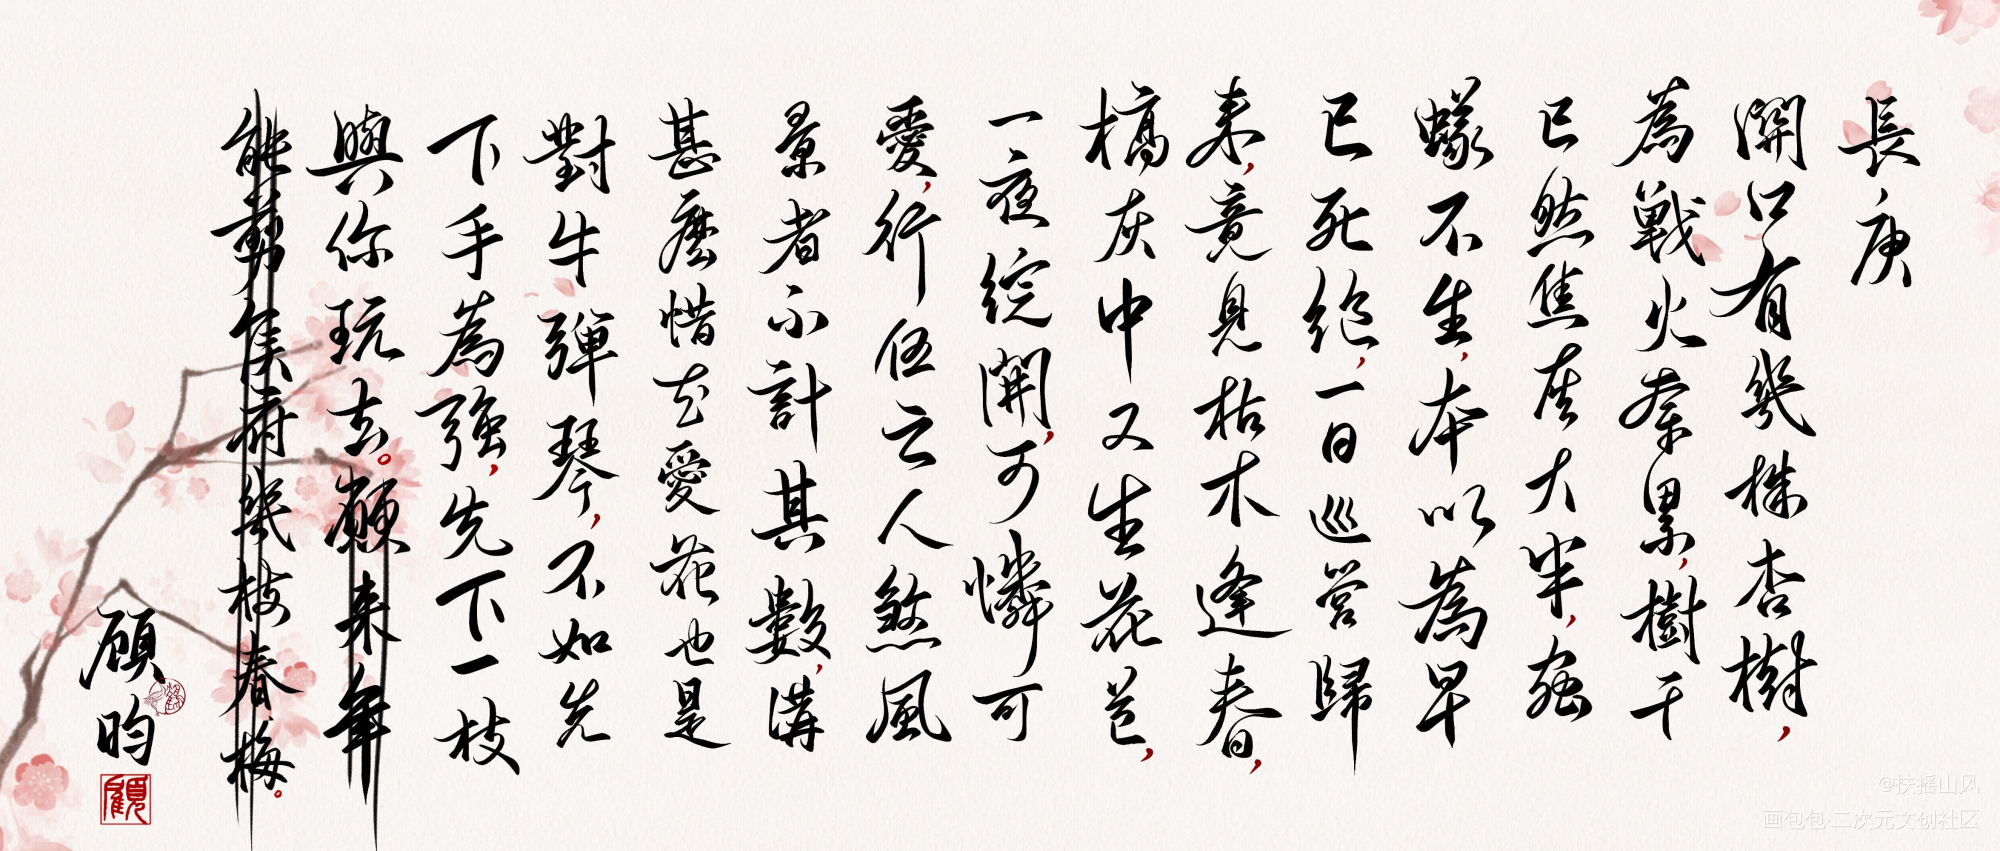 長庚
開口有幾株杏樹，
為戰火牽累，樹干
已然焦灰大半，強
蟻不生，本以為早
已死絕，一日巡營歸
來，竟見枯木逢春，
槁灰中又生花苞，
一夜綻開，可憐可
愛，行伍之人煞風
景者不計其數，講
甚麼惜花愛花也是
對牛彈琴，不如先
下手為強，先下一枝
與你玩去。願來年
能剪侯府幾枝春梅。
顧昀
顧
@扶摇山风
画包包·二次元文创社区